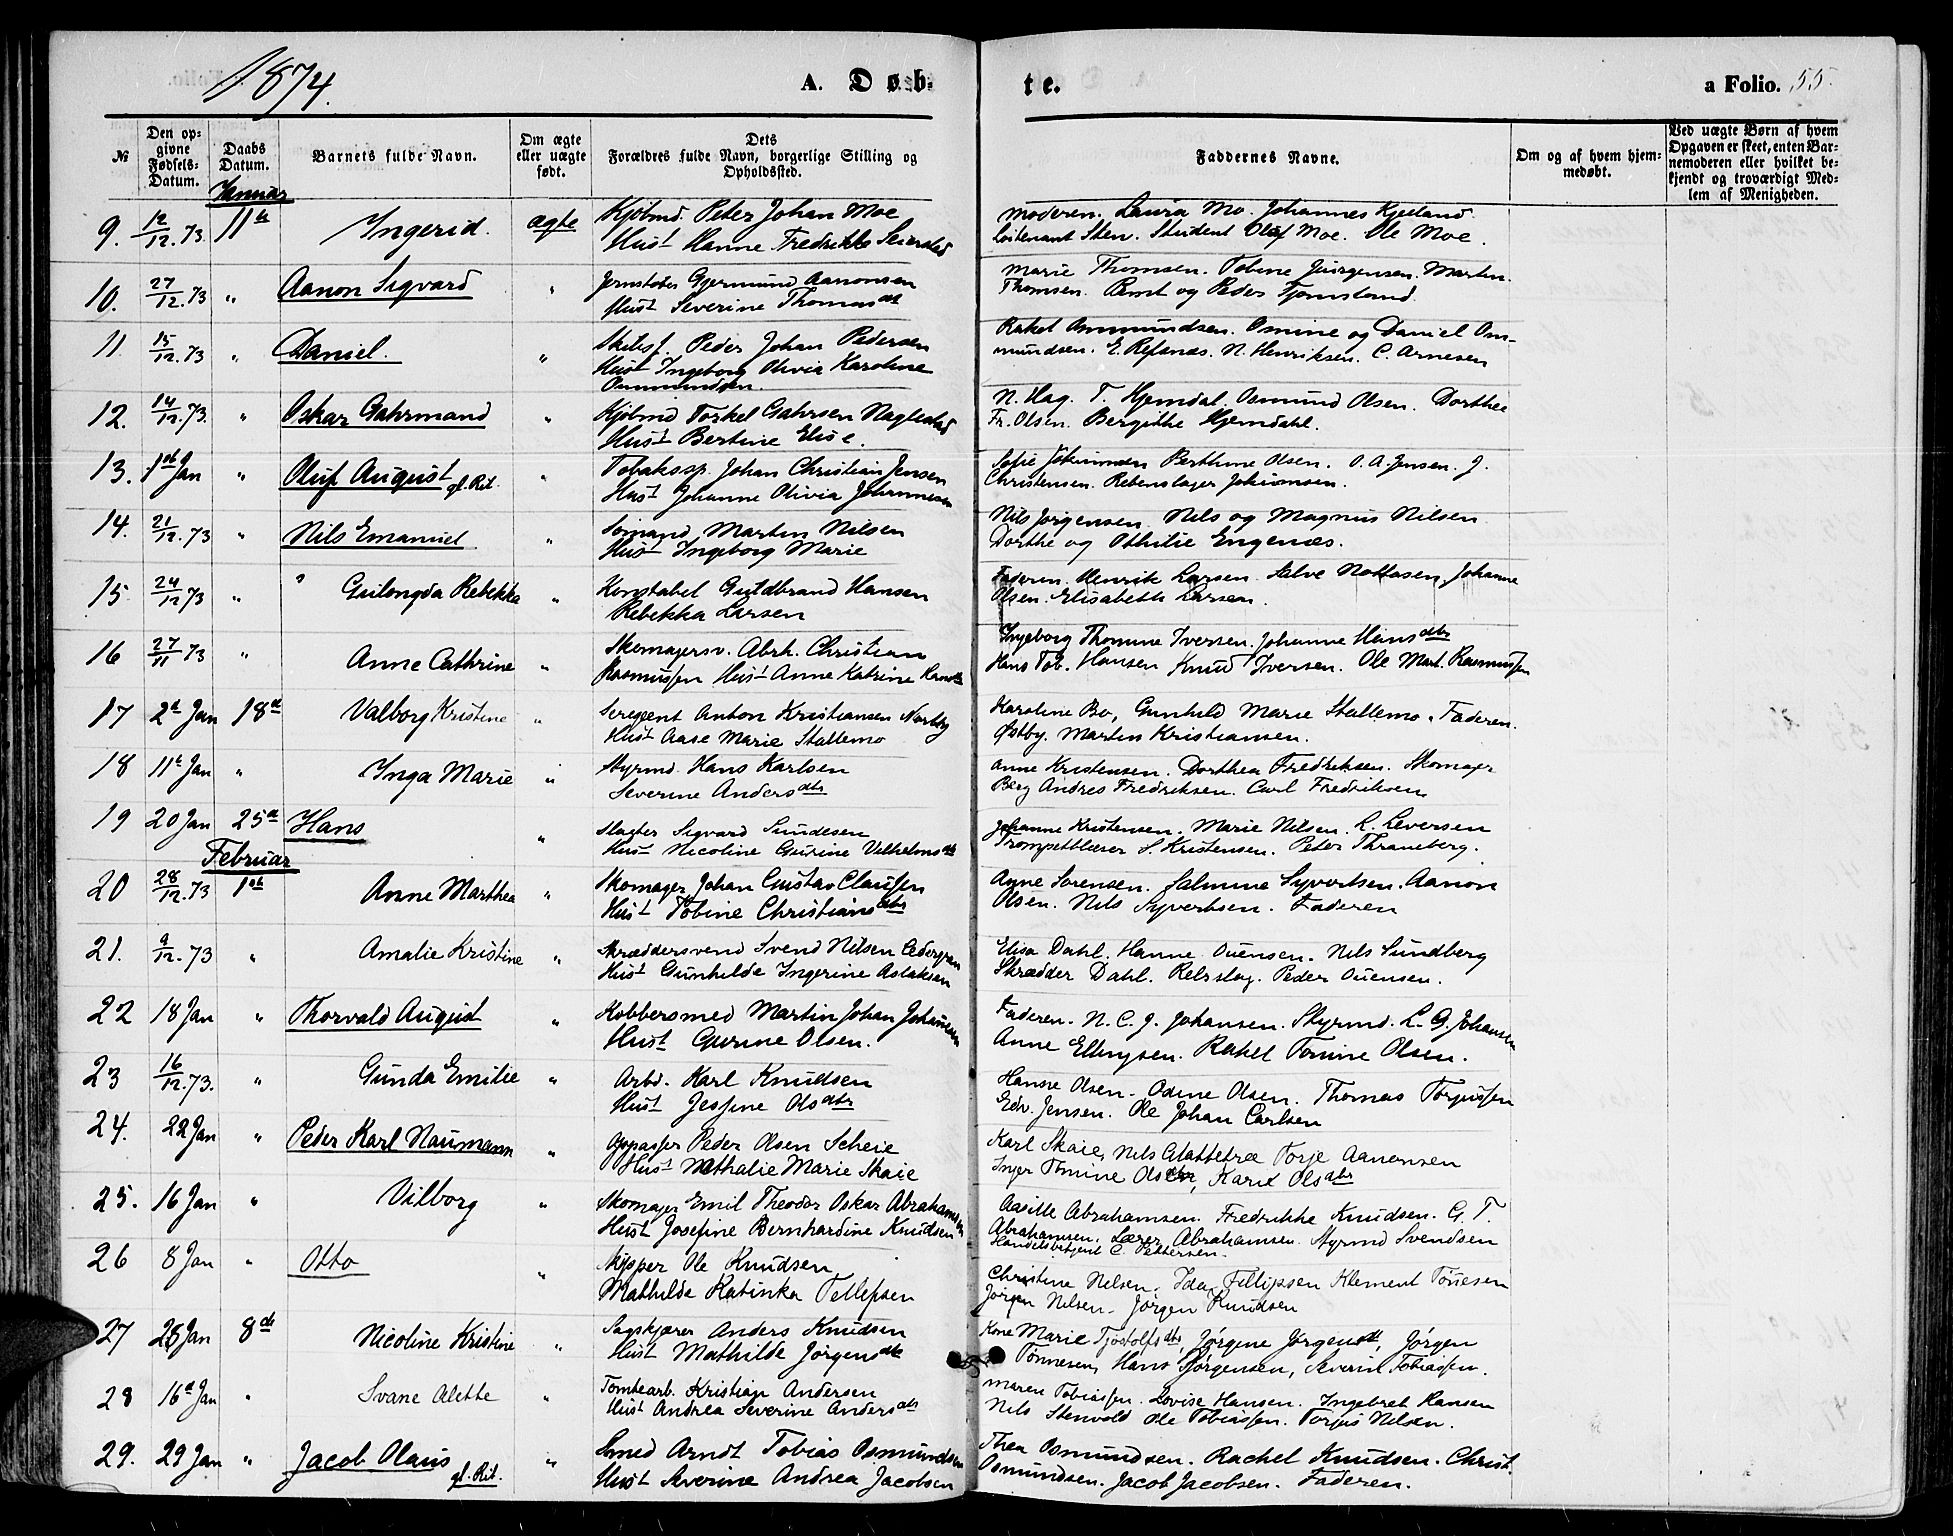 1874.
A. Døb-
te.
a Folio. 55.
№
Den opgivne Fødsels-Datum.
Daabs Datum.
Barnets fulde Navn.
Om ægte eller uægte født.
Dets Forældres fulde Navn, borgerlige Stilling og Opholdssted.
Faddernes Navne.
Om og af hvem hjemmedøbt.
Ved uægte Børn af hvem Opgaven er skeet, enten Barnemoderen eller hvilket bekjendt og troværdigt Medlem af Menigheden.
Januar
9. 12/12.73 11te Ingerid. ægte Kjøbmd. Peter Johan Moe
Hust Hanne Fredrikke Seierstad
Moderen. Laura Mo. Johannes Kjeeland
Loitenant Sten. Student Oluf Moe. Ole Moe.
10. 27/12.73 " Aanon Sigvard " Jernstøber Gjermund Aanonsen
Hust Severine Thomasdtr
Marie Thomsen. Tobine Juirgensen. Martin
Thomsen. Bernt og Peder Fjomstand.
11. 15/12.73 " Daniel. " Skibsf. Peder Johan Pedersen
Hust Ingeborg Olivia Karoline
Ommundsen.
Rakel Ommundsen. Omine og Daniel Om-
mundsen. E. Refsnæs. N. Henriksen. C. Arnesen
12. 14/12.73. " Oskar Gahrmand " Kjøbmd Torkel Gahrsen Naglestad
Hust Bertine Elise.
N. Hag. T. Hjemdal. Osmund Olsen. Dorthee
Fr. Olsen. Bergithe Hjemdahl.
13. 1ste Jan " Oluf August gl. Rit. " Tobakssp. Johan Christian Jensen
Hust Johanne Olivia Johannesen
Sofie Berthine Olsen. O. A. Jensen. J.
Christensen. Rebenslager Johannsen.
14. 21/12.73 " Nils Emanuel " Sømand Martin Nilsen
Hust Ingeborg Marie
Nils Jørgensen. Nils og Magnus Nilsen
Dorthe og Othilie Engenæs.
15. 24/12 73 " Gulongda Rebekka " Konstabel Guldbrand Hansen
Rebekka Larsen
Faderen. Henrik Larsen. Salve Nottosen, Johanne
Olsen. Elisabeth Larsen.
16 27/11 73 " Anne Cathrine " Skomagersv. Abrh. Christian
Rasmussen Hust Anne Katrine
Ingeborg Thomine Iversen. Johanne Hansdtr
Hans Tob. Hansen Knud Iversen. Ole Mart. Rasmussen
17 2d Jan 18de Valborg Kristine " Sergeent Anton Kristiansen Norby
Hust Aase Marie Stallemo
Karoline Bo, Gunhild Marie Stallemo. Faderen.
Østby. Martin Kristiansen.
18 11te Jan " Inga Marie " Styrmd. Hans Karlsen
Severine Andersdtr
Anne Kristensen. Dorthea Fredriksen. Skomager
Berg Andres Fredriksen. Carl Fredriksen
19 20 Jan 25de Hans " Slagter Sigvard Sundesen
Hust Nicoline Gurine Vilhelmsdtr
Johanne Kristensen. Marie Nilsen. L. Leversen
Trompetblæser S. Kristensen. Peter Thraneberg.
Februar
20 28/12.73 1ste Anne Marthea " Skomager Johan Gustav Claussen
Hust Tobine Christiansdtr
Anne Sørensen. Salmine Syvertsen. Aanon
Olsen. Nils Syvertsen. Faderen
21. 9/12.73 " Amalie Kristine " Skræddersvend Svend Nilsen Cedergren
Hust Gunhilde Ingerine Aslaksen
Elisa Dahl. Hanne Ouensen. Nils Sundberg
Skrædder Dahl. Rebslag. Peder Ouensen.
22 18 Jan " Thorvald August " Kobbersmed Martin Johan Johansen
Hust Gurine Olsen.
Faderen. N. C. J. Johansen. Styrmd. L. G. Johansen
Anne Ellingsen. Rakel Tomine Olsen.
23 16/12.73. " Gunda Emilie " Arbd. Karl Knudsen
Hust Jessine Olsdtr
Hansse Olsen. Odine Olsen. Thomas Torjussen
Edv. Jensen. Ole Johan Carlsen
24. 22 Jan " Peder Karl Naumann " Oppasser Peder Olsen Scheie
Hust Nathalie Marie Skaie
Karl Skaie, Nils Glattetre Torje Aanensen
Inger Tomine Olsdtr, Karen Olsdtr
25. 16 Jan " Vilborg " Skomager Emil Theodor Oskar Abrahamsen
Hust Josefine Bernhardine Knudsen
Aasille Abrahamsen. Fredrikke Knudsen. G. T.
Abrahamsen. Lærer Abrahamsen. Styrmd Svendsen
Handelsbetjent C. Pettersen.
26 8 Jan " Otto " Skipper Ole Knudsen
Mathilde Katinka Tellefsen
Christine Nelsen. Ida Fillipsen Klement Tønesen
Jørgen Nelsen. Jørgen Knudsen
27 26 Jan 8de Nicoline Kristine " Sagskjærer Anders Knudsen
Hust Mathilde Jørgensdtr
Kone Marie Tjostolfsdtr, Jørgine Jørgensdtr, Jørgen
Tønnesen, Hans Jørgensen, Severin Tobiassen.
28 16de Jan " Svane Alette " Tomtearb. Kristian Andersen
Hust Andrea Severine Andersdtr
Maren Tobiassen. Lovise Hansen. Ingebret Hansen
Nils Stenvold Ole Tobiassen. Torjus Nilsen.
29. 29 Jan " Jacob Olaus gl. Rit. " Smed Arndt Tobias Osmundsen
Hust Severine Andrea Jacobsen
Thea Osmundsen. Rachel Knudsen. Christ.
Osmundsen. Jacob Jacobsen. Faderen.